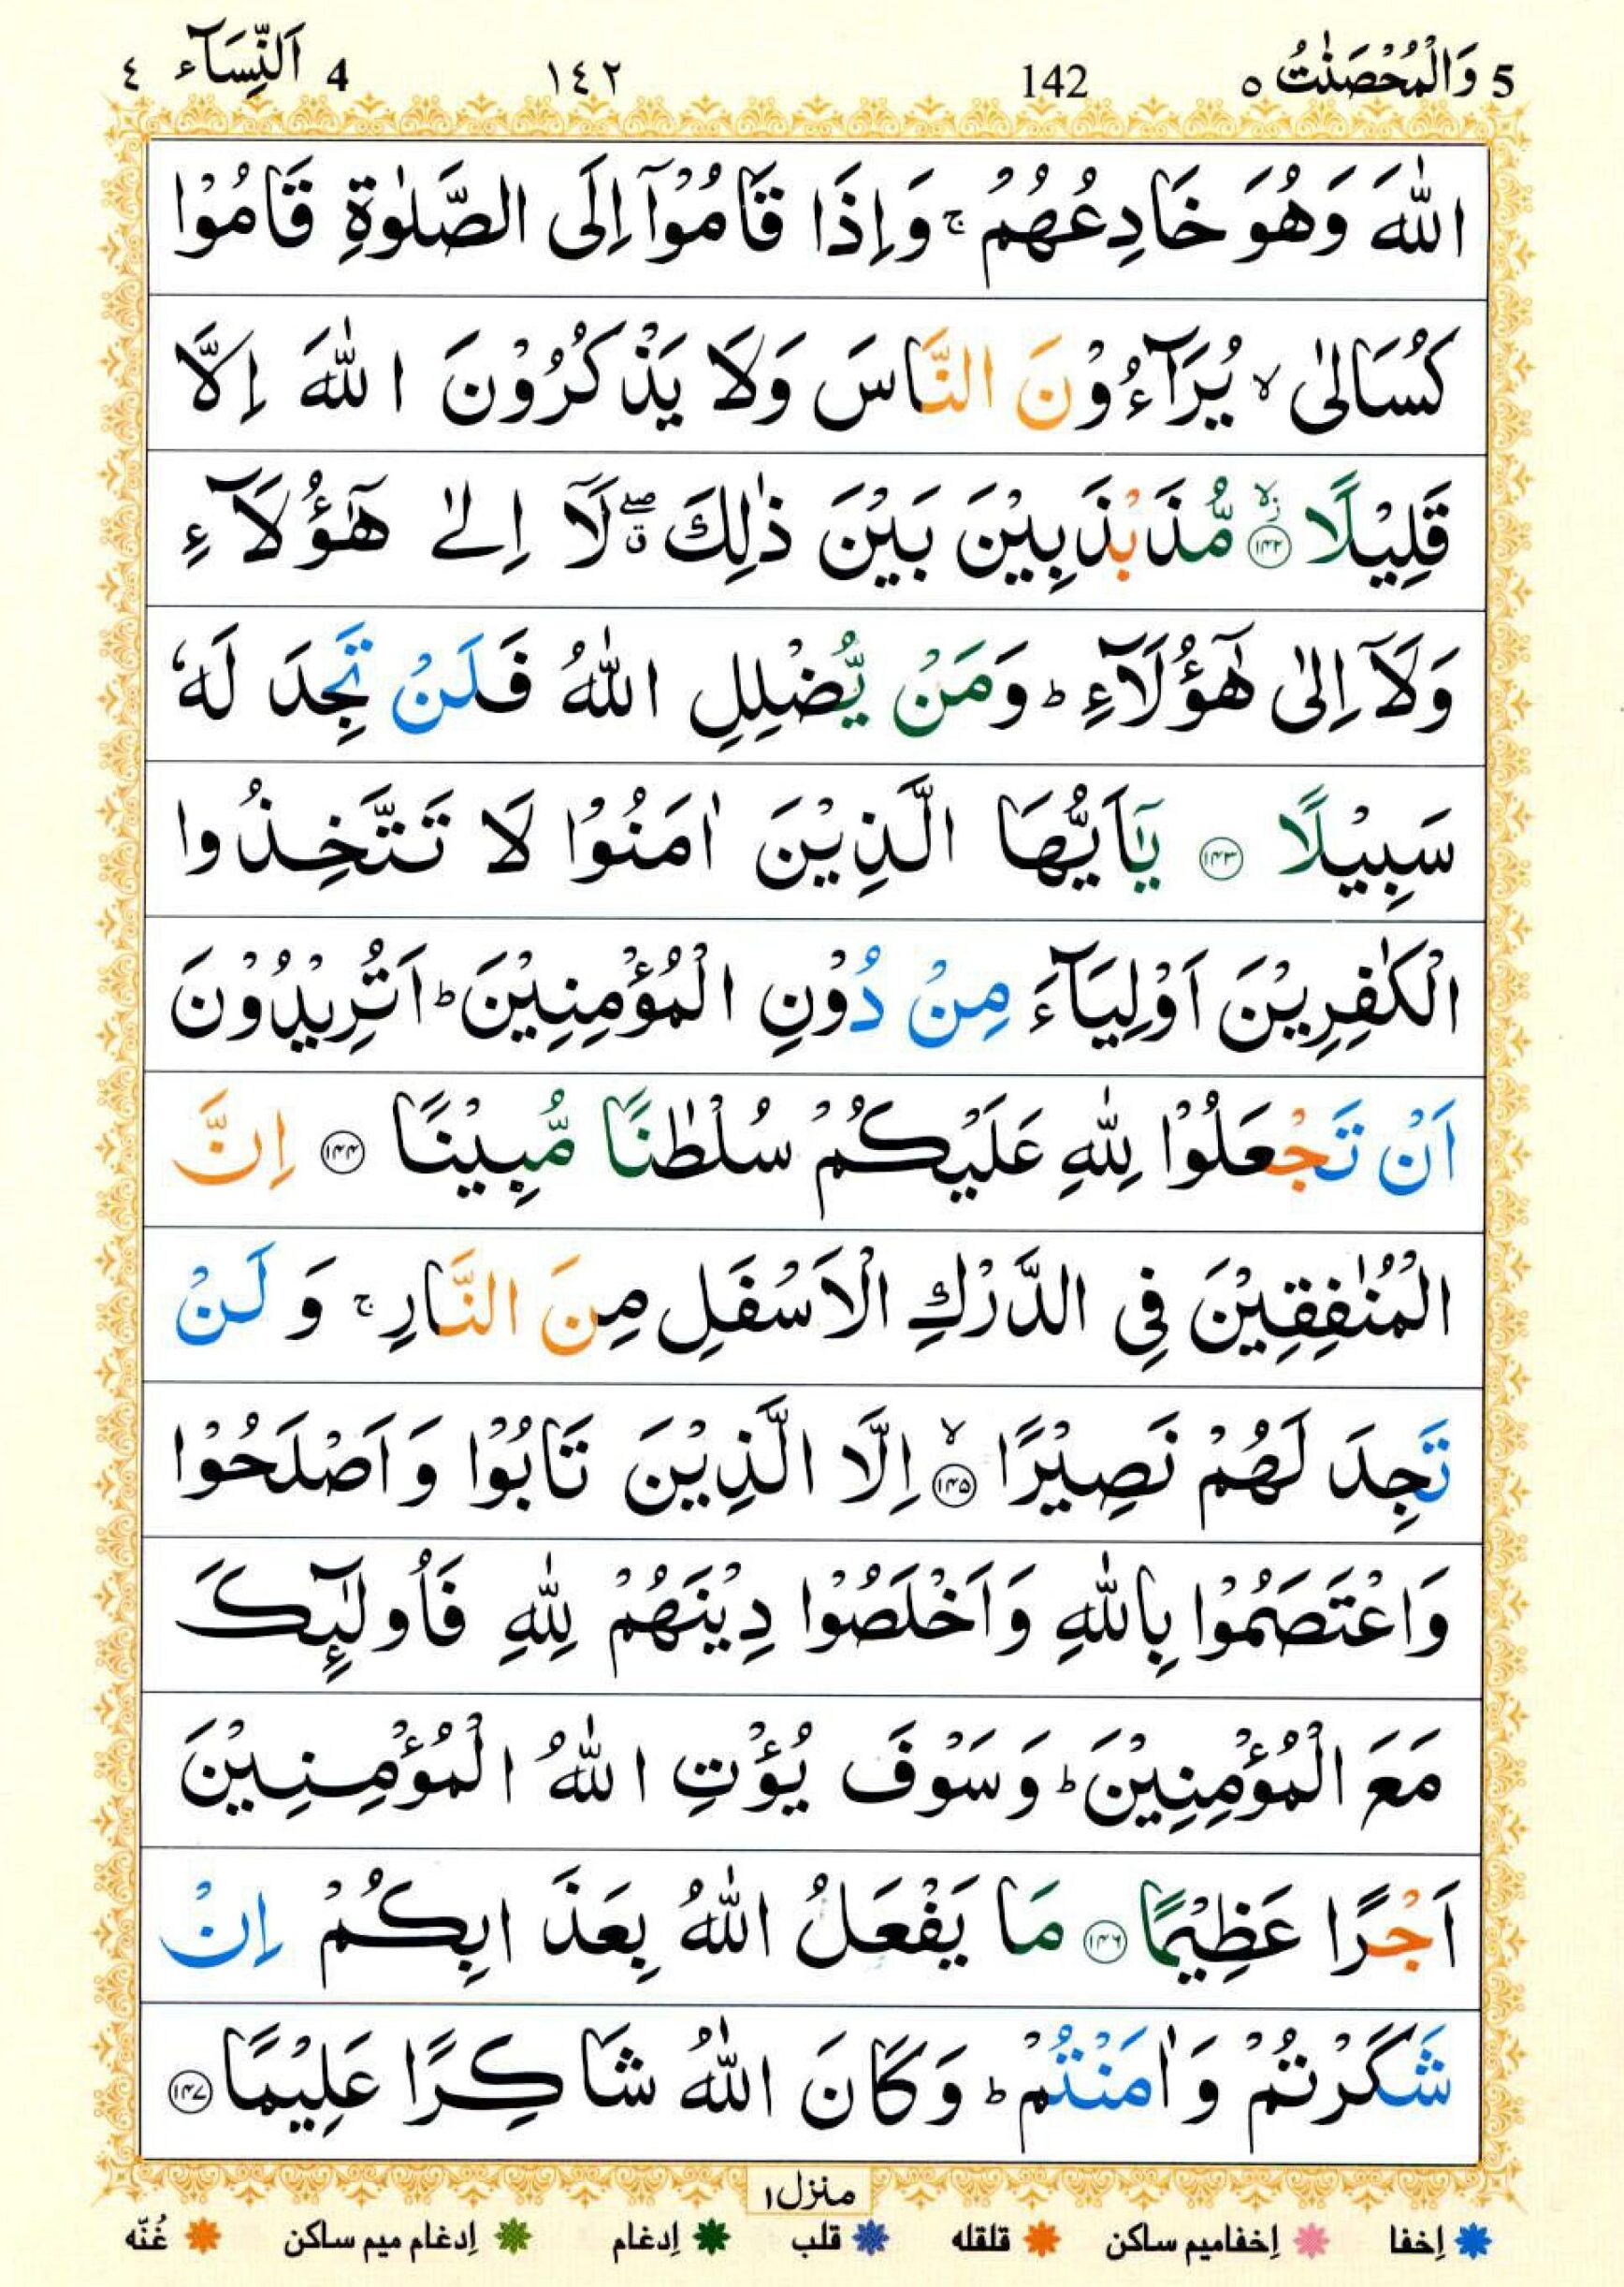 5 وَالْمُحْصَنٰتُ ٥ 142 ١٤٢ 4 اَلنِّسَآء ٤
اللّٰهَ وَهُوَ خَادِعُهُمْ ۚ وَاِذَا قَامُوْۤا اِلَى الصَّلٰوةِ قَامُوْا
كُسَالٰى ۙ يُرَآءُوْنَ النَّاسَ وَلَا يَذْكُرُوْنَ اللّٰهَ اِلَّا
قَلِيْلًا ۙ۬ ﴿۱۴۲﴾ مُّذَبْذَبِيْنَ بَيْنَ ذٰلِكَ ۖۗ لَاۤ اِلٰى هٰۤؤُلَآءِ
وَلَاۤ اِلٰى هٰۤؤُلَآءِ ؕ وَمَنْ يُّضْلِلِ اللّٰهُ فَلَنْ تَجِدَ لَهٗ
سَبِيْلًا ﴿۱۴۳﴾ يٰۤاَيُّهَا الَّذِيْنَ اٰمَنُوْا لَا تَتَّخِذُوا
الْكٰفِرِيْنَ اَوْلِيَآءَ مِنْ دُوْنِ الْمُؤْمِنِيْنَ ؕ اَتُرِيْدُوْنَ
اَنْ تَجْعَلُوْا لِلّٰهِ عَلَيْكُمْ سُلْطٰنًا مُّبِيْنًا ﴿۱۴۴﴾ اِنَّ
الْمُنٰفِقِيْنَ فِى الدَّرْكِ الْاَسْفَلِ مِنَ النَّارِ ۚ وَلَنْ
تَجِدَ لَهُمْ نَصِيْرًا ۙ ﴿۱۴۵﴾ اِلَّا الَّذِيْنَ تَابُوْا وَاَصْلَحُوْا
وَاعْتَصَمُوْا بِاللّٰهِ وَاَخْلَصُوْا دِيْنَهُمْ لِلّٰهِ فَاُولٰٓئِكَ
مَعَ الْمُؤْمِنِيْنَ ؕ وَسَوْفَ يُؤْتِ اللّٰهُ الْمُؤْمِنِيْنَ
اَجْرًا عَظِيْمًا ﴿۱۴۶﴾ مَا يَفْعَلُ اللّٰهُ بِعَذَابِكُمْ اِنْ
شَكَرْتُمْ وَاٰمَنْتُمْ ؕ وَكَانَ اللّٰهُ شَاكِرًا عَلِيْمًا ﴿۱۴۷﴾
منزل ۱
إخفا إخفاميم ساكن قلقله قلب إدغام إدغام ميم ساكن غُنّه